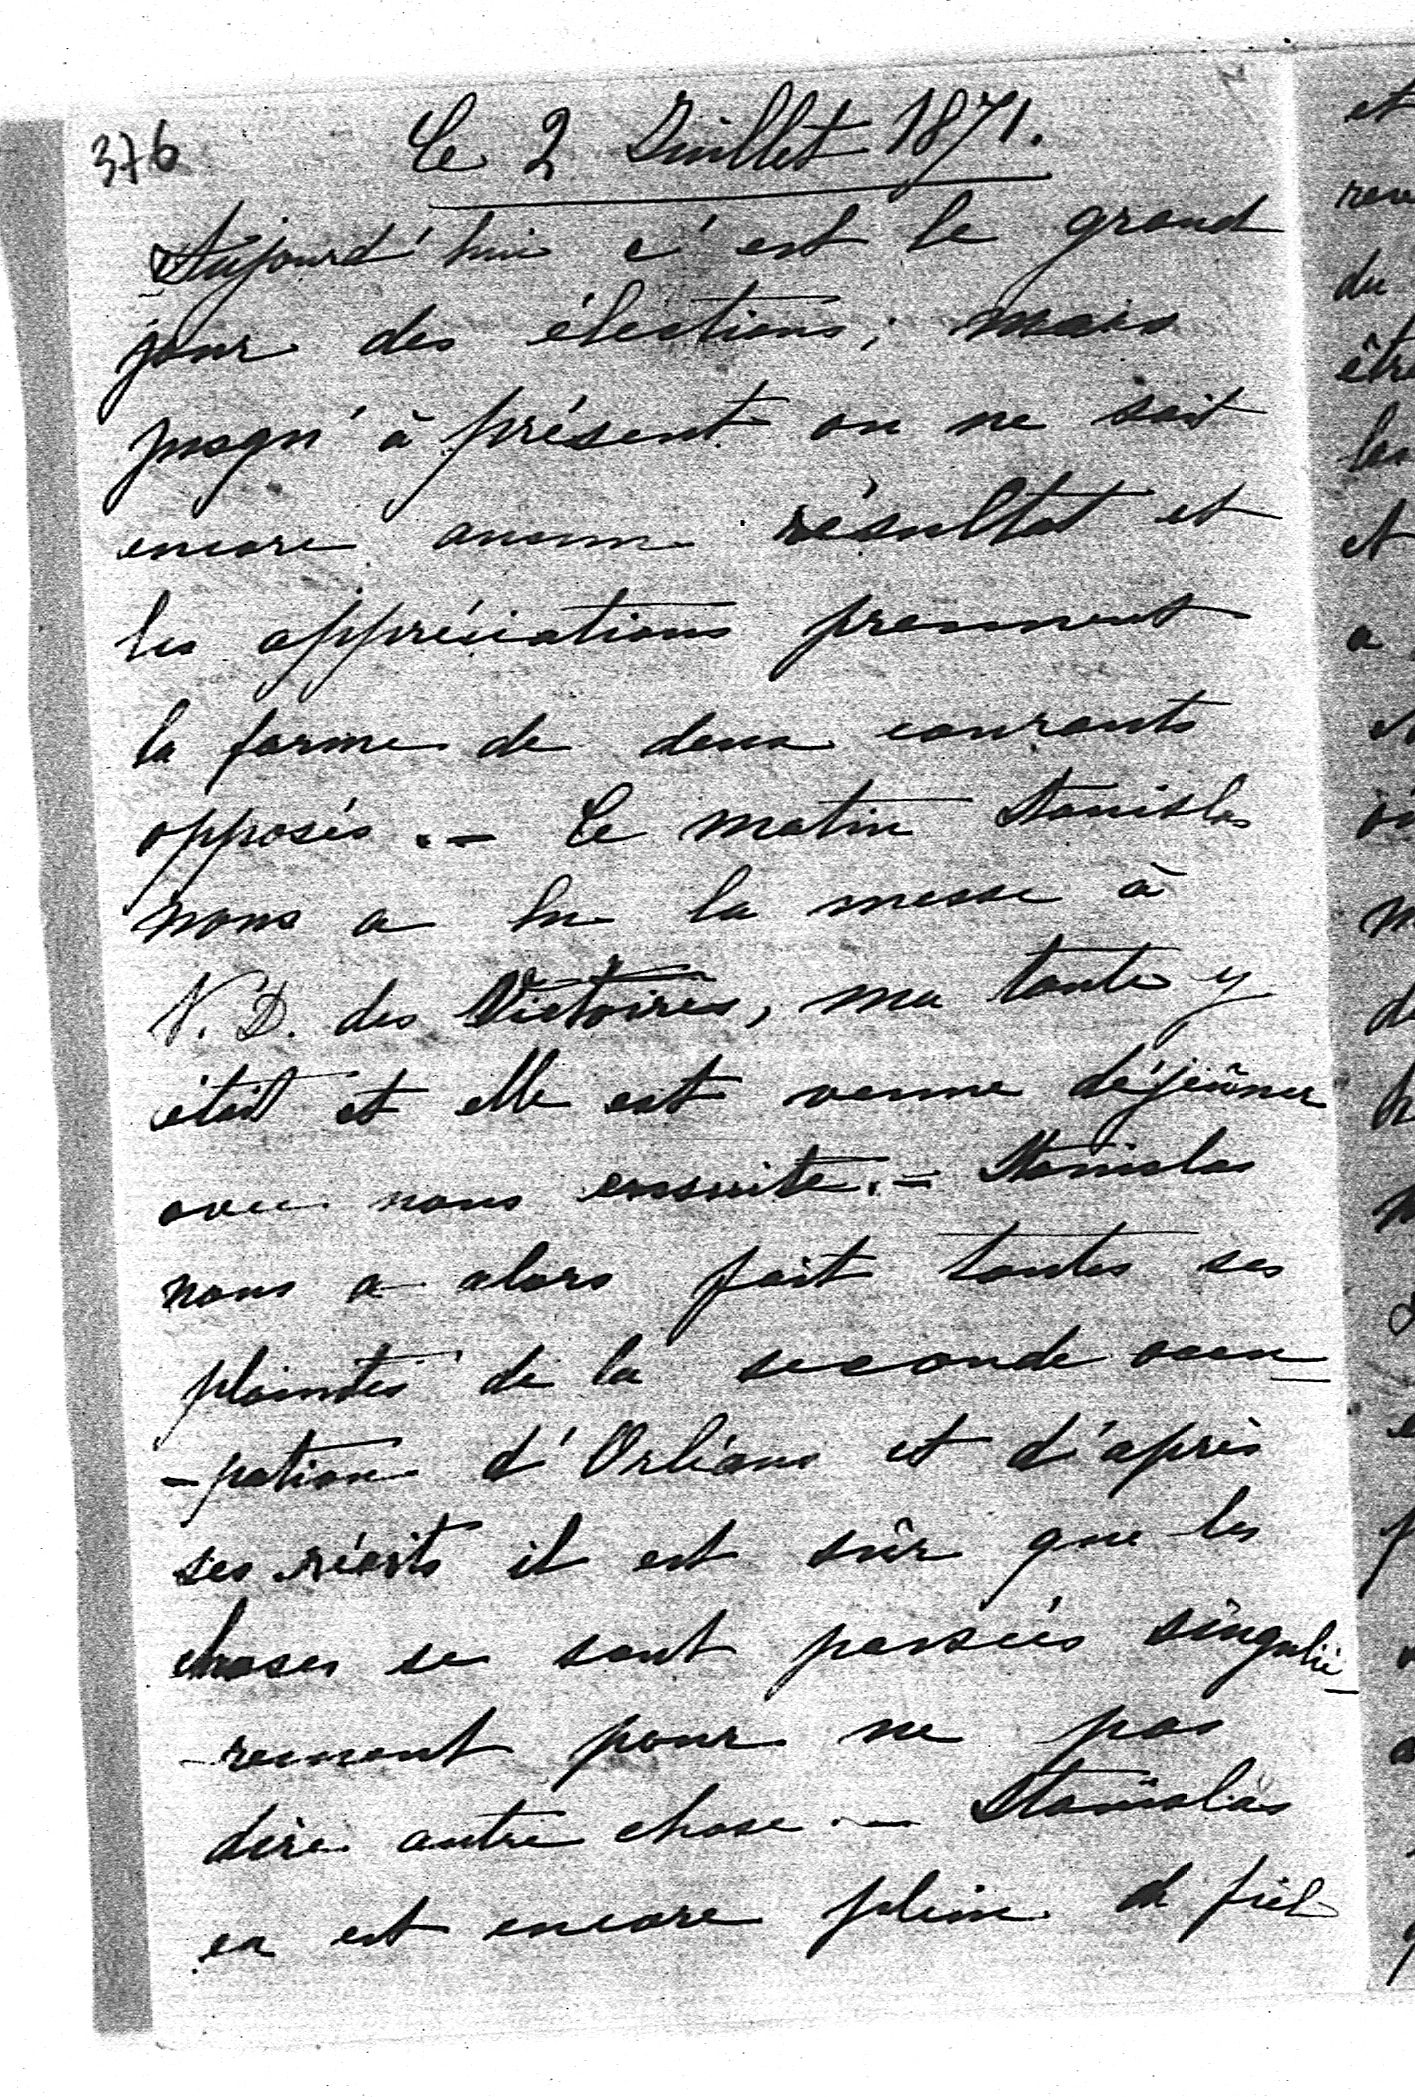 376
Le 2 Juillet 1871.
Aujourd'hui c'est le grand
jour des élections; mais
jusqu'à présent on ne sait
encore aucun résultat et
les appréciations prennent
la forme de deux courants
opposés. - Ce matin Stanislas
nous a lu la messe à
N. D. des Victoires, ma tante y
était et elle est venue déjeûner
avec nous ensuite. - Stanislas
nous a alors fait toutes ses
plaintes de la seconde occu-
-pation d'Orléans et d'après
ses récits il est sûr que les
choses se sont passées singuliè-
-rement pour ne pas
dire autre chose. - Stanislas
en est encore plein de fiel